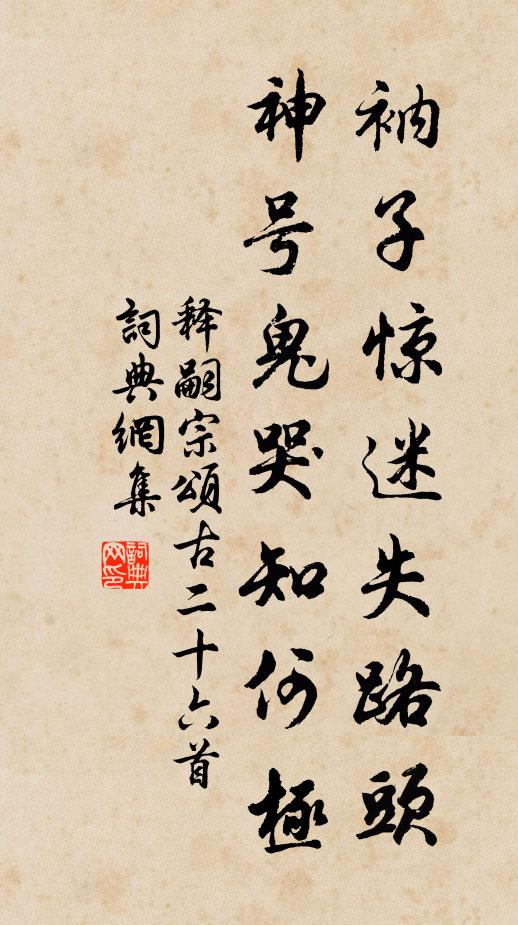 衲子惊迷失路頭
神号鬼哭知何極
释嗣宗頌古二十六首
詞典網集
詞典网印